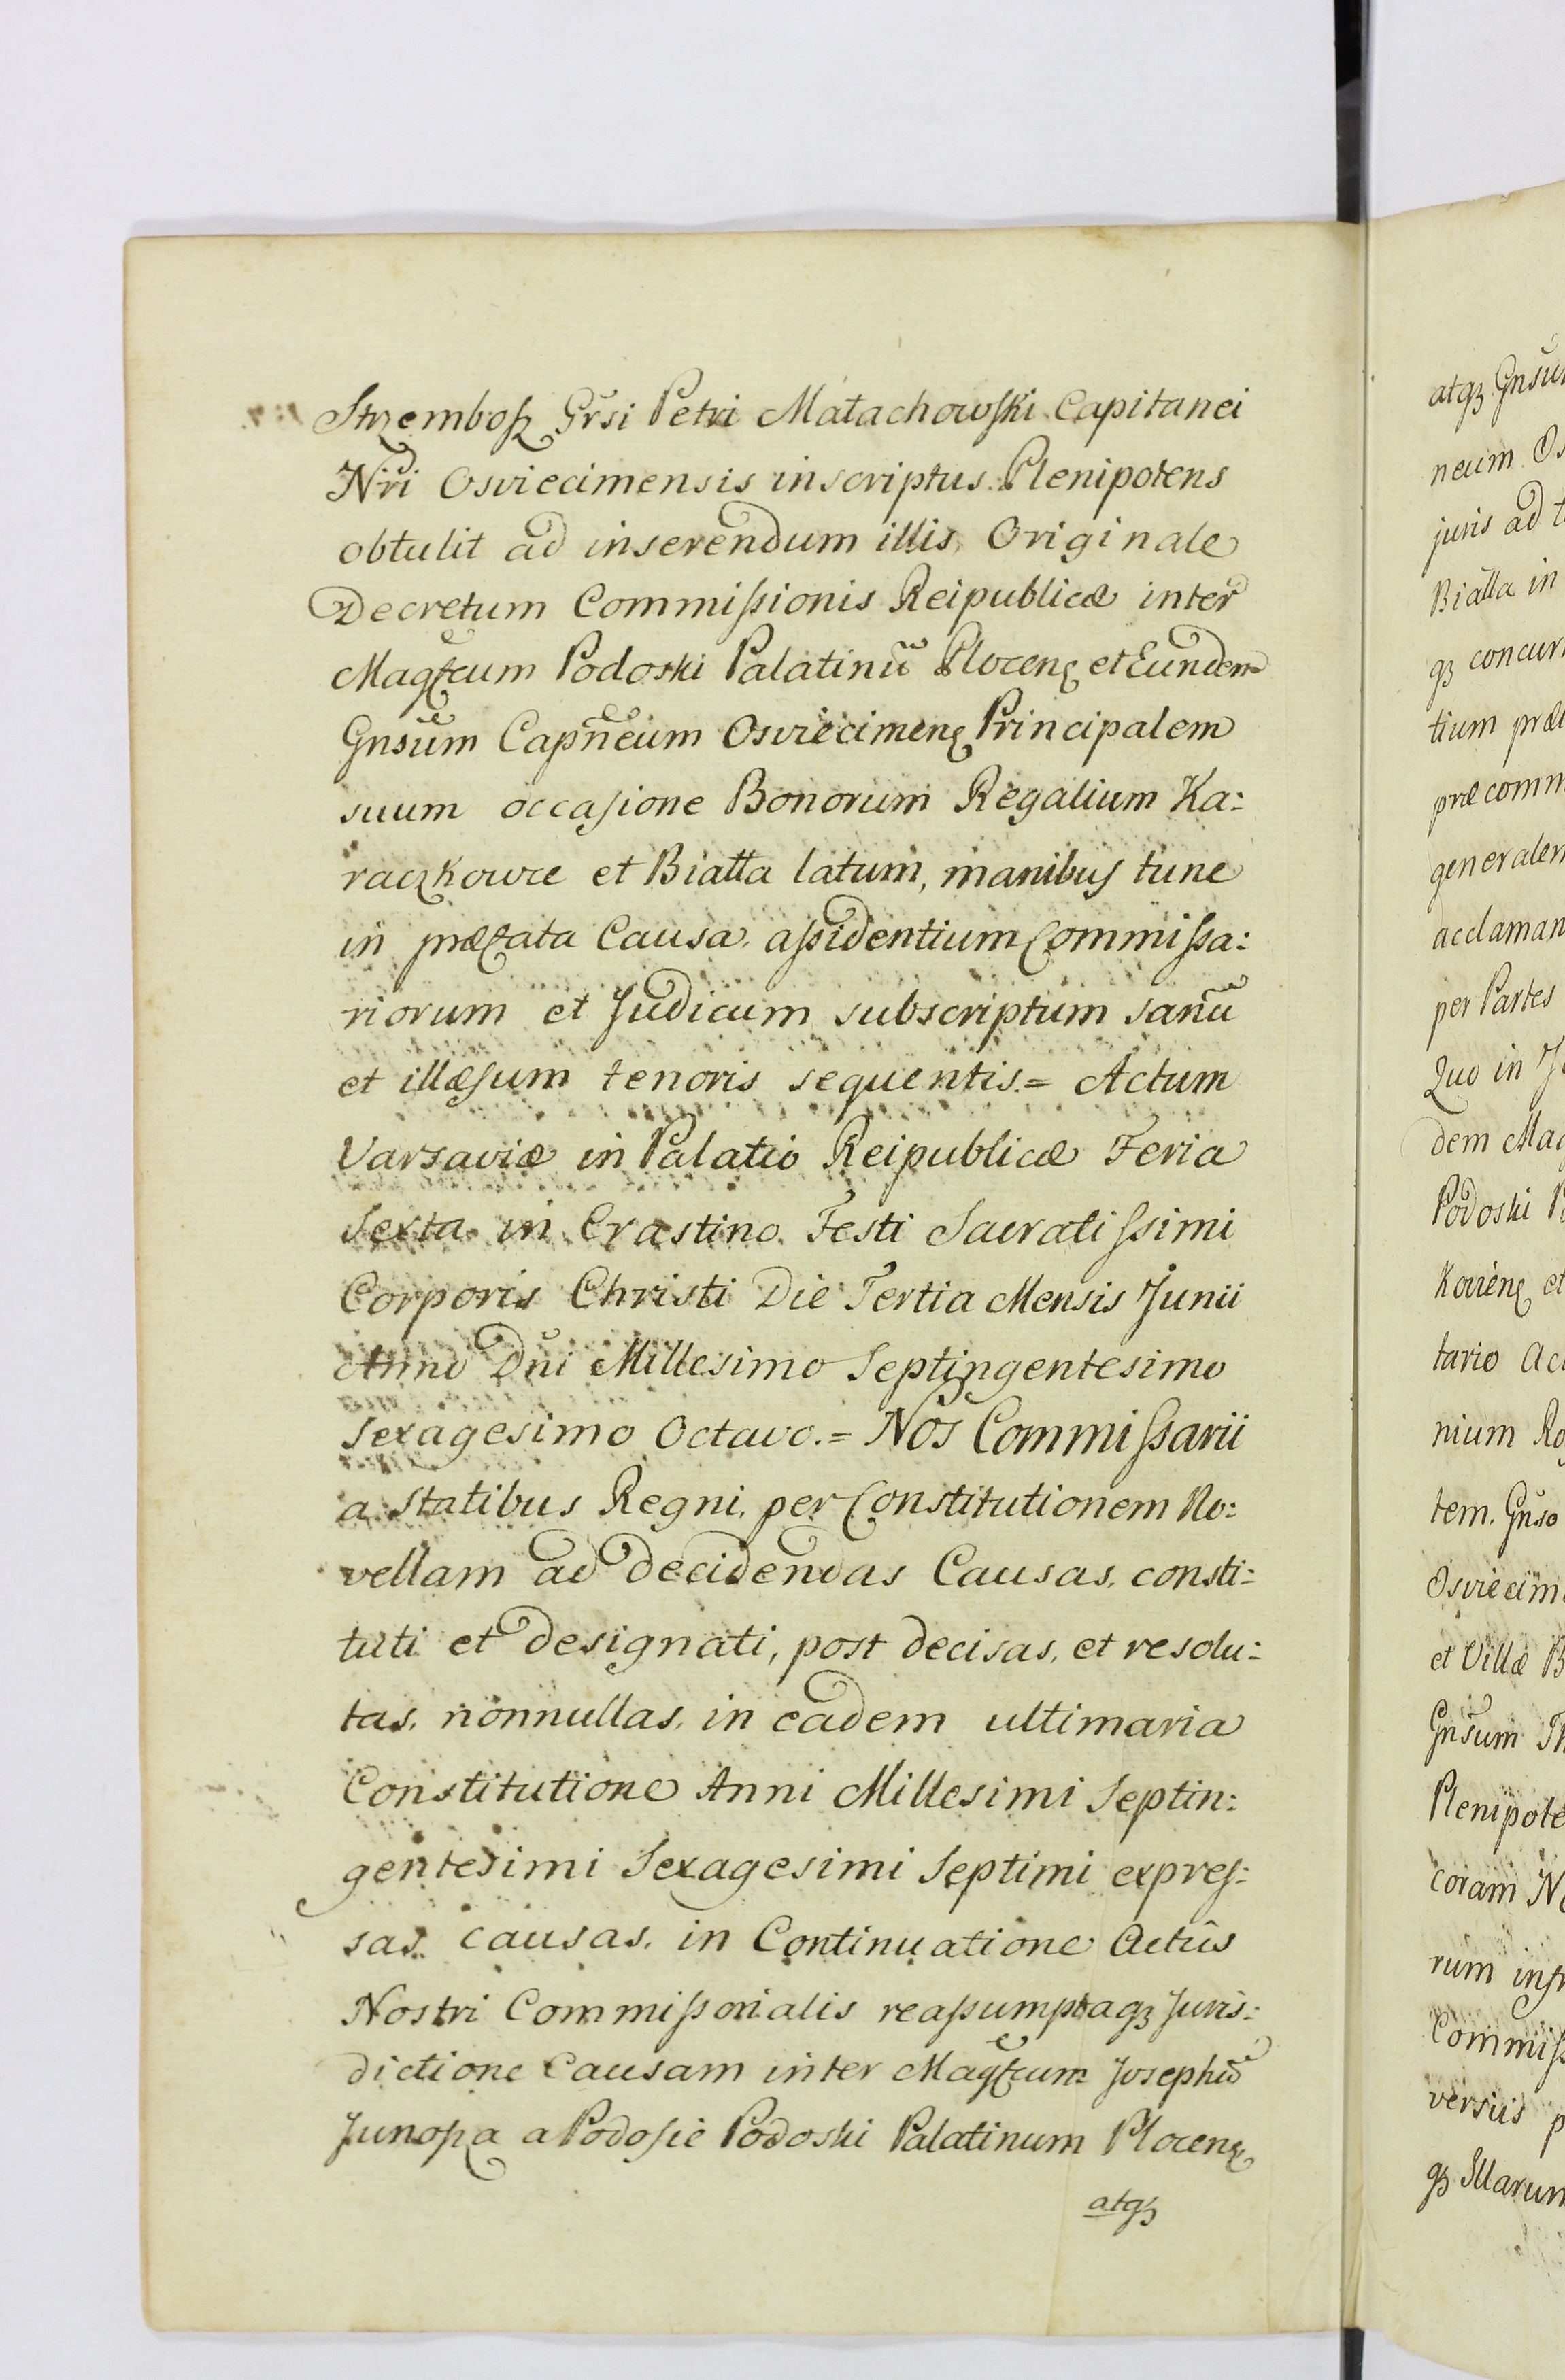 Strzembosz Gr̃si Petri Małachowski Capitanei
Nr̃i Osviecimensis inscriptus Plenipotens
obtulit ad inserendum illis, Originale
Decretum Commissionis Reipublicæ inter
Magfcum Podoski Palatinũ Plocenꝫ et Eundem
Gnsũm Capñeum Osviecimenꝫ Principalem
suum occasione Bonorum Regalium Ka:
raczkowce et Biatta latum, manibus tunc
in præfata Causa, assidentium Commissa:
riorum et Judicum subscriptum sanũ
et illæsum tenoris sequentis = Actum
Varsaviæ in Palatio Reipublicæ Feria
Sexta in Crastino Festi Sacratissimi
Corporis Christi Die Tertia Mensis Junii
Anno Dñi Millesimo Septingentesimo
Sexagesimo Octavo. = Nos Commissarii
a Statibus Regni, per Constitutionem No:
vellam ad decidendas Causas, consti:
tuti et designati, post decisas, et resolu:
tas, nonnullas, in eadem ultimaria
Constitutione Anni Millesimi Septin:
gentesimi Sexagesimi Septimi expres:
sas causas, in Continuatione Actûs
Nostri Commissorialis reassumptaqꝫ Juris:
dictione Causam inter Magfcum Josephũ
Junosza a Podosie Podoski Palatinum Plocenꝫ
atqꝫ
atqꝫ Gnsũ
neum Os
juris ad t
Bialla in
qꝫ concur
tium præ
præcomm
generalem
acclaman
per Partes
Quo in
dem Mag
Podoski P
kovienꝫ et
tario Ac
nium Re
tem. Gnso
Osviecim
et Villæ B
Gnsum Th
Plenipote
coram N
rum inf
Commiss
versiis p
qꝫ Illarum